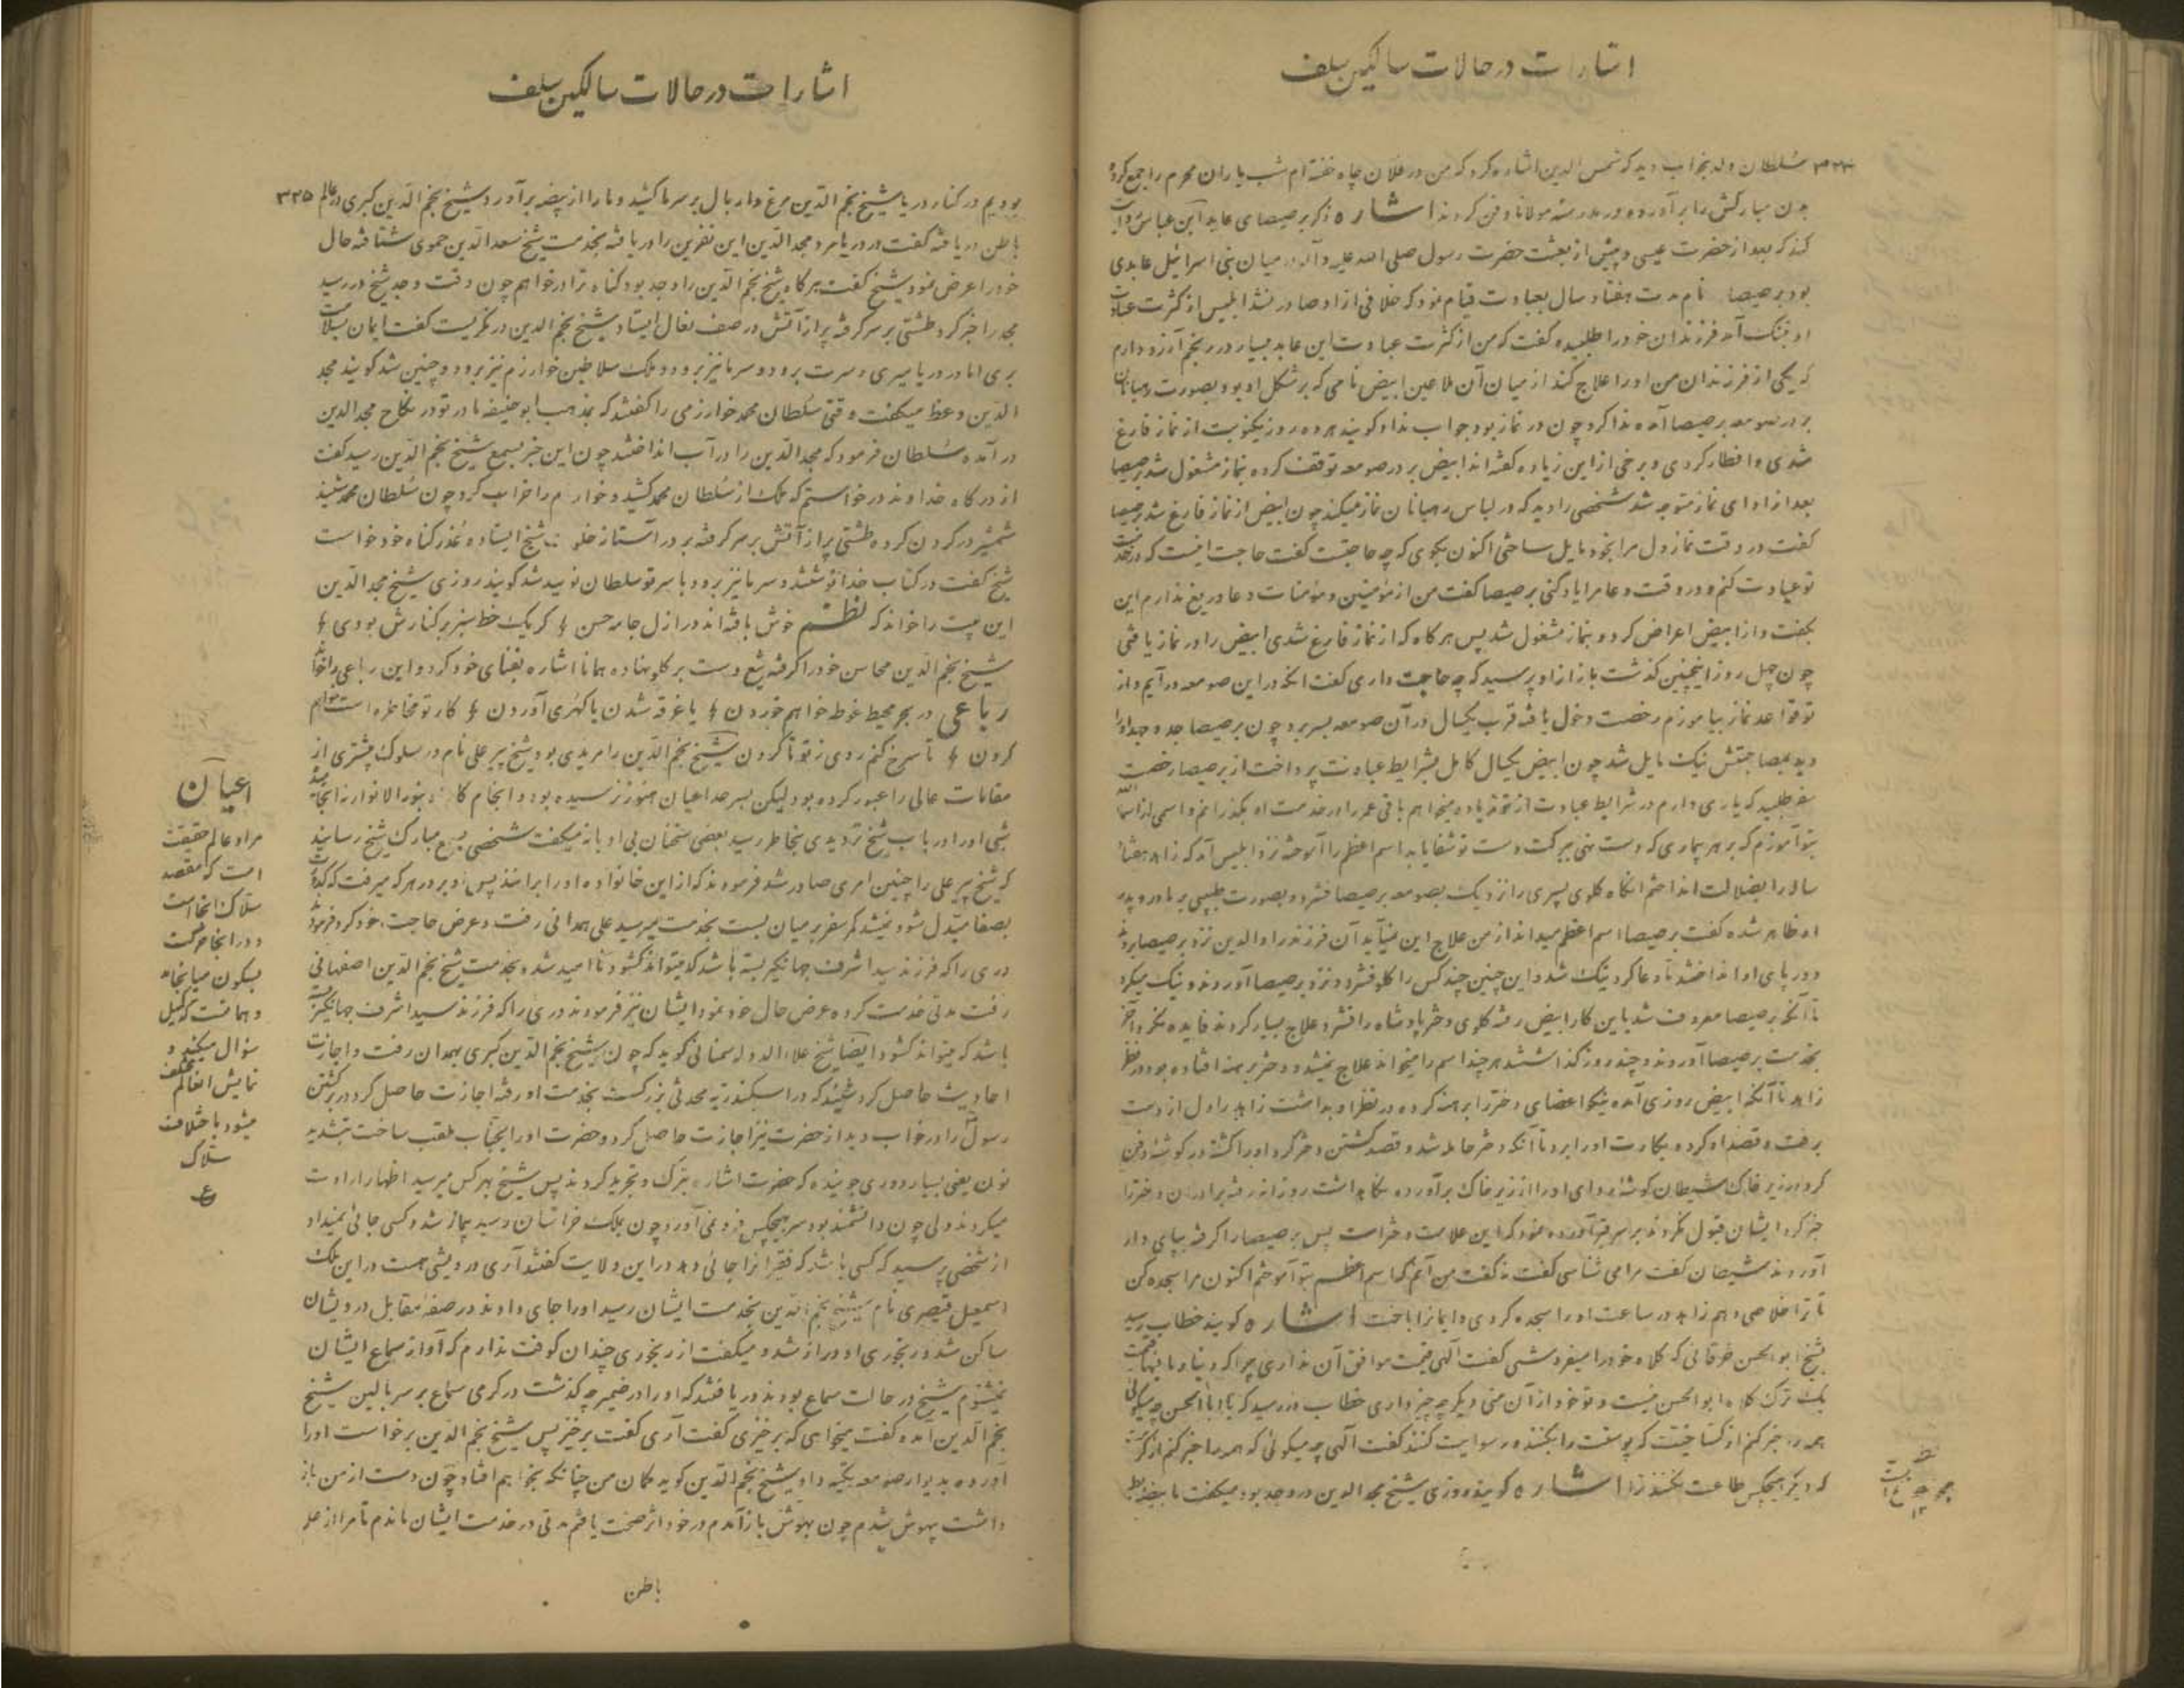 اشارات در حالات سالکین سلف
۳۲۴ سلطان ولد بخواب دید که شمس الدین اشاره کرد که من در فلان چاه خفته ام شب یاران محرم را جمع کرده
چون مبارکش را برآورده در مدرسه مولانا دفن کردند اشاره ذکر برصیصای عابد ابن عباس روایت
کند که بعد از حضرت عیسی و پیش از بعثت حضرت رسول صلی الله علیه و آله در میان بنی اسرائیل عابدی
بود برصیصا نام مدت هفتاد سال بعبادت قیام نمود که خلافی از او صادر نشد ابلیس از کثرت عبادت
او بتنگ آمد فرزندان خود را طلبیده گفت که من از کثرت عبادت این عابد بسیار در رنجم آرزو دارم
که یکی از فرزندان من او را علاج کند از میان آن ملاعین ابیض نامی که بر شکل او بود بصورت رهبانان
بر در صومعه برصیصا آمده ندا کرد چون در نماز بود جواب نداد گویند هر ده روز یکنوبت از نماز فارغ
شدی و افطار کردی و برخی از این زیاده گفته اند ابیض بر در صومعه توقف کرده بنماز مشغول شد برصیصا
بعد از ادای نماز متوجه شد شخصی را دید که در لباس رهبانان نماز میکند چون ابیض از نماز فارغ شد برصیصا
گفت در وقت نماز دل مرا بخود مایل ساختی اکنون بگوی که چه حاجتست گفت حاجت اینست که در خدمت
تو عبادت کنم و در وقت دعا مرا یاد کنی برصیصا گفت من از مؤمنین و مؤمنات دعا دریغ ندارم این
بگفت و از ابیض اعراض کرد و بنماز مشغول شد پس هر گاه که از نماز فارغ شدی ابیض را در نماز یافتی
چون چهل روز اینچنین گذشت باز از او پرسید که چه حاجت داری گفت آنکه در این صومعه در آیم و از
تو قواعد نماز بیاموزم رخصت دخول یافته قرب یکسال در آن صومعه بسر برد چون برصیصا جد و جهد او را
دید بمصاحبتش نیک مایل شد چون ابیض یکسال کامل بشرایط عبادت پرداخت از برصیصا رخصت
سفر طلبید که یاری دارم در شرایط عبادت از تو زیاده میخواهم باقی عمر را در خدمت او بگذرانم و اسمی از اسماءالله
بتو آموزم که بر هر بیماری که دست نهی ببرکت دست تو شفا یابد اسم اعظم را آموخته نزد ابلیس آمد که زاهد هفتاد
ساله را بضلالت انداختم آنگاه گلوی پسری را نزدیک بصومعه برصیصا فشرد و بصورت طبیبی بر مادر و پدر
او ظاهر شده گفت برصیصا اسم اعظم میداند از من علاج این نیاید آن فرزند را والدین نزد برصیصا بردند
و در پای او انداختند تا دعا کرد نیک شد و این چنین چند کس را گلو فشرد و نزد برصیصا آوردند و نیک میکرد
تا آنکه برصیصا معروف شد باین کار ابیض رفته گلوی دختر پادشاه را فشرد علاج بسیار کردند فایده نکرد آخر
بخدمت برصیصا آوردند و چند روز گذاشتند هر چند اسم را میخواند علاج نمیشد و دختر برهنه افتاده بود در نظر
زاهد تا آنکه ابیض روزی آمده نیکو اعضای دختر را برهنه کرده در نظر او بداشت زاهد را دل از دست
برفت و قصد او کرده بکارت او را برد تا آنکه دختر حامله شد و قصد کشتن دختر کرد او را کشته در گوشه دفن
کرد در زیر خاک شیطان گوشه ردای او را از زیر خاک برآورده نگاهداشت روزانه رفته برادران دختر را
خبر کرد ایشان قبول نکردند بر سر قبر آورده نمود که این علامت دختر است پس برصیصا را گرفته بپای دار
آوردند شیطان گفت مرا می شناسی گفت نه گفت من آنم که اسم اعظم بتو آموختم اکنون مرا سجده کن
تا ترا خلاصی دهم زاهد در ساعت او را سجده کردی و ایمان را باخت اشاره گویند خطاب رسید
بشیخ ابوالحسن خرقانی که کلاه خود را میفروشی گفت الهی قیمت موافق آن نداری چرا که دنیا و مافیها قیمت
یک ترک کلاه ابوالحسن نیست و تو خود از آن منی دیگر چه چیز داری خطاب در رسید که یا ابا الحسن چه میگوئی
همه را خبر کنم از گستاخیت که پوستت را بکنند و رسوایت کنند گفت الهی چه میگوئی که همه را خبر کنم از کرمت
که دیگر هیچکس طاعت نکند ترا اشاره گویند روزی شیخ مجد الدین در وجد بود میگفت ما بیضه بط
اشارات در حالات سالکین سلف
بودیم در کنار دریا شیخ نجم الدین مرغ دار بال بر سر ما کشید و ما را از بیضه برآورد شیخ نجم الدین کبری در عالم ۳۲۵
باطن دریافته گفت در دریا مرد مجد الدین این نفرین را دریافته بخدمت شیخ سعد الدین حموی شتافته حال
خود را عرض نمود شیخ گفت هر گاه شیخ نجم الدین را وجد بود گناه ترا درخواهم چون وقت وجد شیخ در رسید
مجد را خبر کرد طشتی بر سر گرفته پر از آتش در صف نعال ایستاد شیخ نجم الدین در نگریست گفت ایمان بسلامت
بری اما در دریا میری و سرت برود و سر ما نیز برود و ملک سلاطین خوارزم نیز برود و چنین شد گویند مجد
الدین وعظ میگفت وقتی سلطان محمد خوارزمی را گفتند که بمذهب ابو حنیفه مادر تو در نکاح مجد الدین
در آمده سلطان فرمود که مجد الدین را در آب انداختند چون این خبر بسمع شیخ نجم الدین رسید گفت
از درگاه خداوند درخواستم که ملک از سلطان محمد کشید و خوارزم را خراب کرد چون سلطان محمد شنید
شمشیر در گردن کرده طشتی پر از آتش بر سر گرفته بر در آستانه خلوت شیخ ایستاده عذر گناه خود خواست
شیخ گفت در کتاب خدا نوشتند و سر ما نیز برود با سر تو سلطان نومید شد گویند روزی شیخ مجد الدین
این بیت را خواند که نظم خوش بافته اند در ازل جامه حسن ؛ گر یک خط سبز بر کنارش بودی ؛
شیخ نجم الدین محاسن خود را گرفته تیغ دست بر گلو نهاده همانا اشاره بفنای خود کرد و این رباعی را خواند
رباعی در بحر محیط غوطه خواهم خوردن ؛ یا غرقه شدن یا گهری آوردن ؛ کار تو مخاطره است خواهم
کردن ؛ تا سرخ کنم روی ز تو تا گردن شیخ نجم الدین را مریدی بود شیخ پیر علی نام در سلوک بیشتری از
مقامات عالی را عبور کرده بود لیکن بسرحد اعیان هنوز نرسیده بود
شبی او را در باب شیخ تردیدی بخاطر رسید بعضی سخنان بی ادبانه میگفت شخصی بسمع مبارک شیخ رسانید
که شیخ پیر علی را چنین امری صادر شد فرمودند که از این خانواده او را برانند پس او بر در هر که میرفت که کدورت
بصفا مبدل شود نمیشد کمر سفر بر میان بست بخدمت میر سید علی همدانی رفت و عرض حاجت خود کرد فرمود
دری را که فرزند سید اشرف جهانگیر بسته باشد که میتواند گشود ناامید شد و بخدمت شیخ نجم الدین اصفهانی
رفت مدتی خدمت کرده عرض حال خود نمود ایشان نیز فرمودند دری را که فرزند سید اشرف جهانگیر بسته
باشد که میتواند گشود ایضا شیخ علاء الدوله سمنانی گوید که چون شیخ نجم الدین کبری بهمدان رفت و اجازت
احادیث حاصل کرد شنید که در اسکندریه محدثی بزرگست بخدمت او رفته اجازت حاصل کرد در برگشتن
رسول را در خواب دید از حضرت نیز اجازت حاصل کرد و حضرت او را بجناب ملقب ساخت بتشدید
نون یعنی بسیار دوری جوینده که حضرت اشاره بترک و تجرید کردند پس شیخ بهر کس میرسید اظهار ارادت
میکردند ولی چون دانشمند بود سر بهیچکس فرو نمی آورد چون بملک خراسان رسید بیمار شد و کسی جائی نمیداد
از شخصی پرسید که کسی باشد که فقیرانرا جائی دهد در این ولایت گفتند آری درویشی هست در این ملک
اسمعیل قیصری نام شیخ نجم الدین بخدمت ایشان رسید او را جای دادند در صفه مقابل درویشان
ساکن شد و رنجوری او دراز شد و میگفت از رنجوری چندان کوفت ندارم که آواز سماع ایشان
نمیشنوم شیخ در حالت سماع بودند دریافتند که او را در ضمیر چه گذشت در گرمی سماع بر سر بالین شیخ
نجم الدین آمده گفت میخواهی که برخیزی گفت آری گفت برخیز پس شیخ نجم الدین برخواست او را
آورده بدیوار صومعه تکیه داد شیخ نجم الدین گوید گمان من چنانکه بخواهم افتاد چون دست از من باز
داشت بیهوش شدم چون بهوش باز آمدم در خود اثر صحت یافتم مدتی در خدمت ایشان ماندم تا مرا از علم
باطن
اعیان
مراد عالم حقیقت
است که مقصد
سلاک انجا است
و در انجا حرکت
بسکون میانجامد
و همانست که کمیل
سؤال میکند و
نمایش انعالم مختلف
میشود باختلاف
سلاک